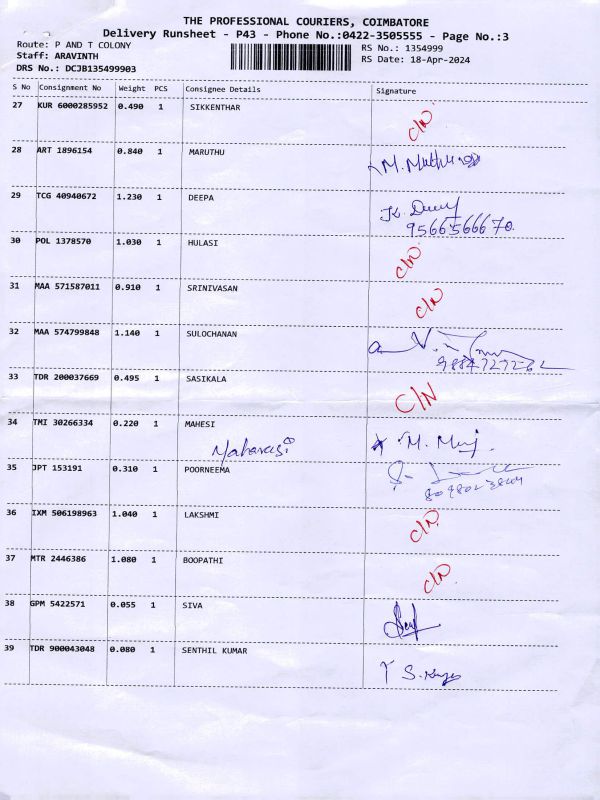 THE PROFESSIONAL COURIERS, COIMBATORE
Delivery Runsheet - P43 - Phone No.:0422-3505555 - Page No.:3
Route: P AND T COLONY
Staff: ARAVINTH
DRS No.: DCJB135499903
RS No.: 1354999
RS Date: 18-Apr-2024
S No Consignment No Weight PCS Consignee Details Signature
27 KUR 6000285952 0.490 1 SIKKENTHAR C/N
28 ART 1896154 0.840 1 MARUTHU
29 TCG 40940672 1.230 1 DEEPA
9566566670.
30 POL 1378570 1.030 1 HULASI C/N
31 MAA 571587011 0.910 1 SRINIVASAN C/N
32 MAA 574799848 1.140 1 SULOCHANAN
33 TDR 200037669 0.495 1 SASIKALA C/N
34 TMI 30266334 0.220 1 MAHESI
35 JPT 153191 0.310 1 POORNEEMA
36 IXM 506198963 1.040 1 LAKSHMI C/N
37 MTR 2446386 1.080 1 BOOPATHI C/N
38 GPM 5422571 0.055 1 SIVA
39 TDR 900043048 0.080 1 SENTHIL KUMAR